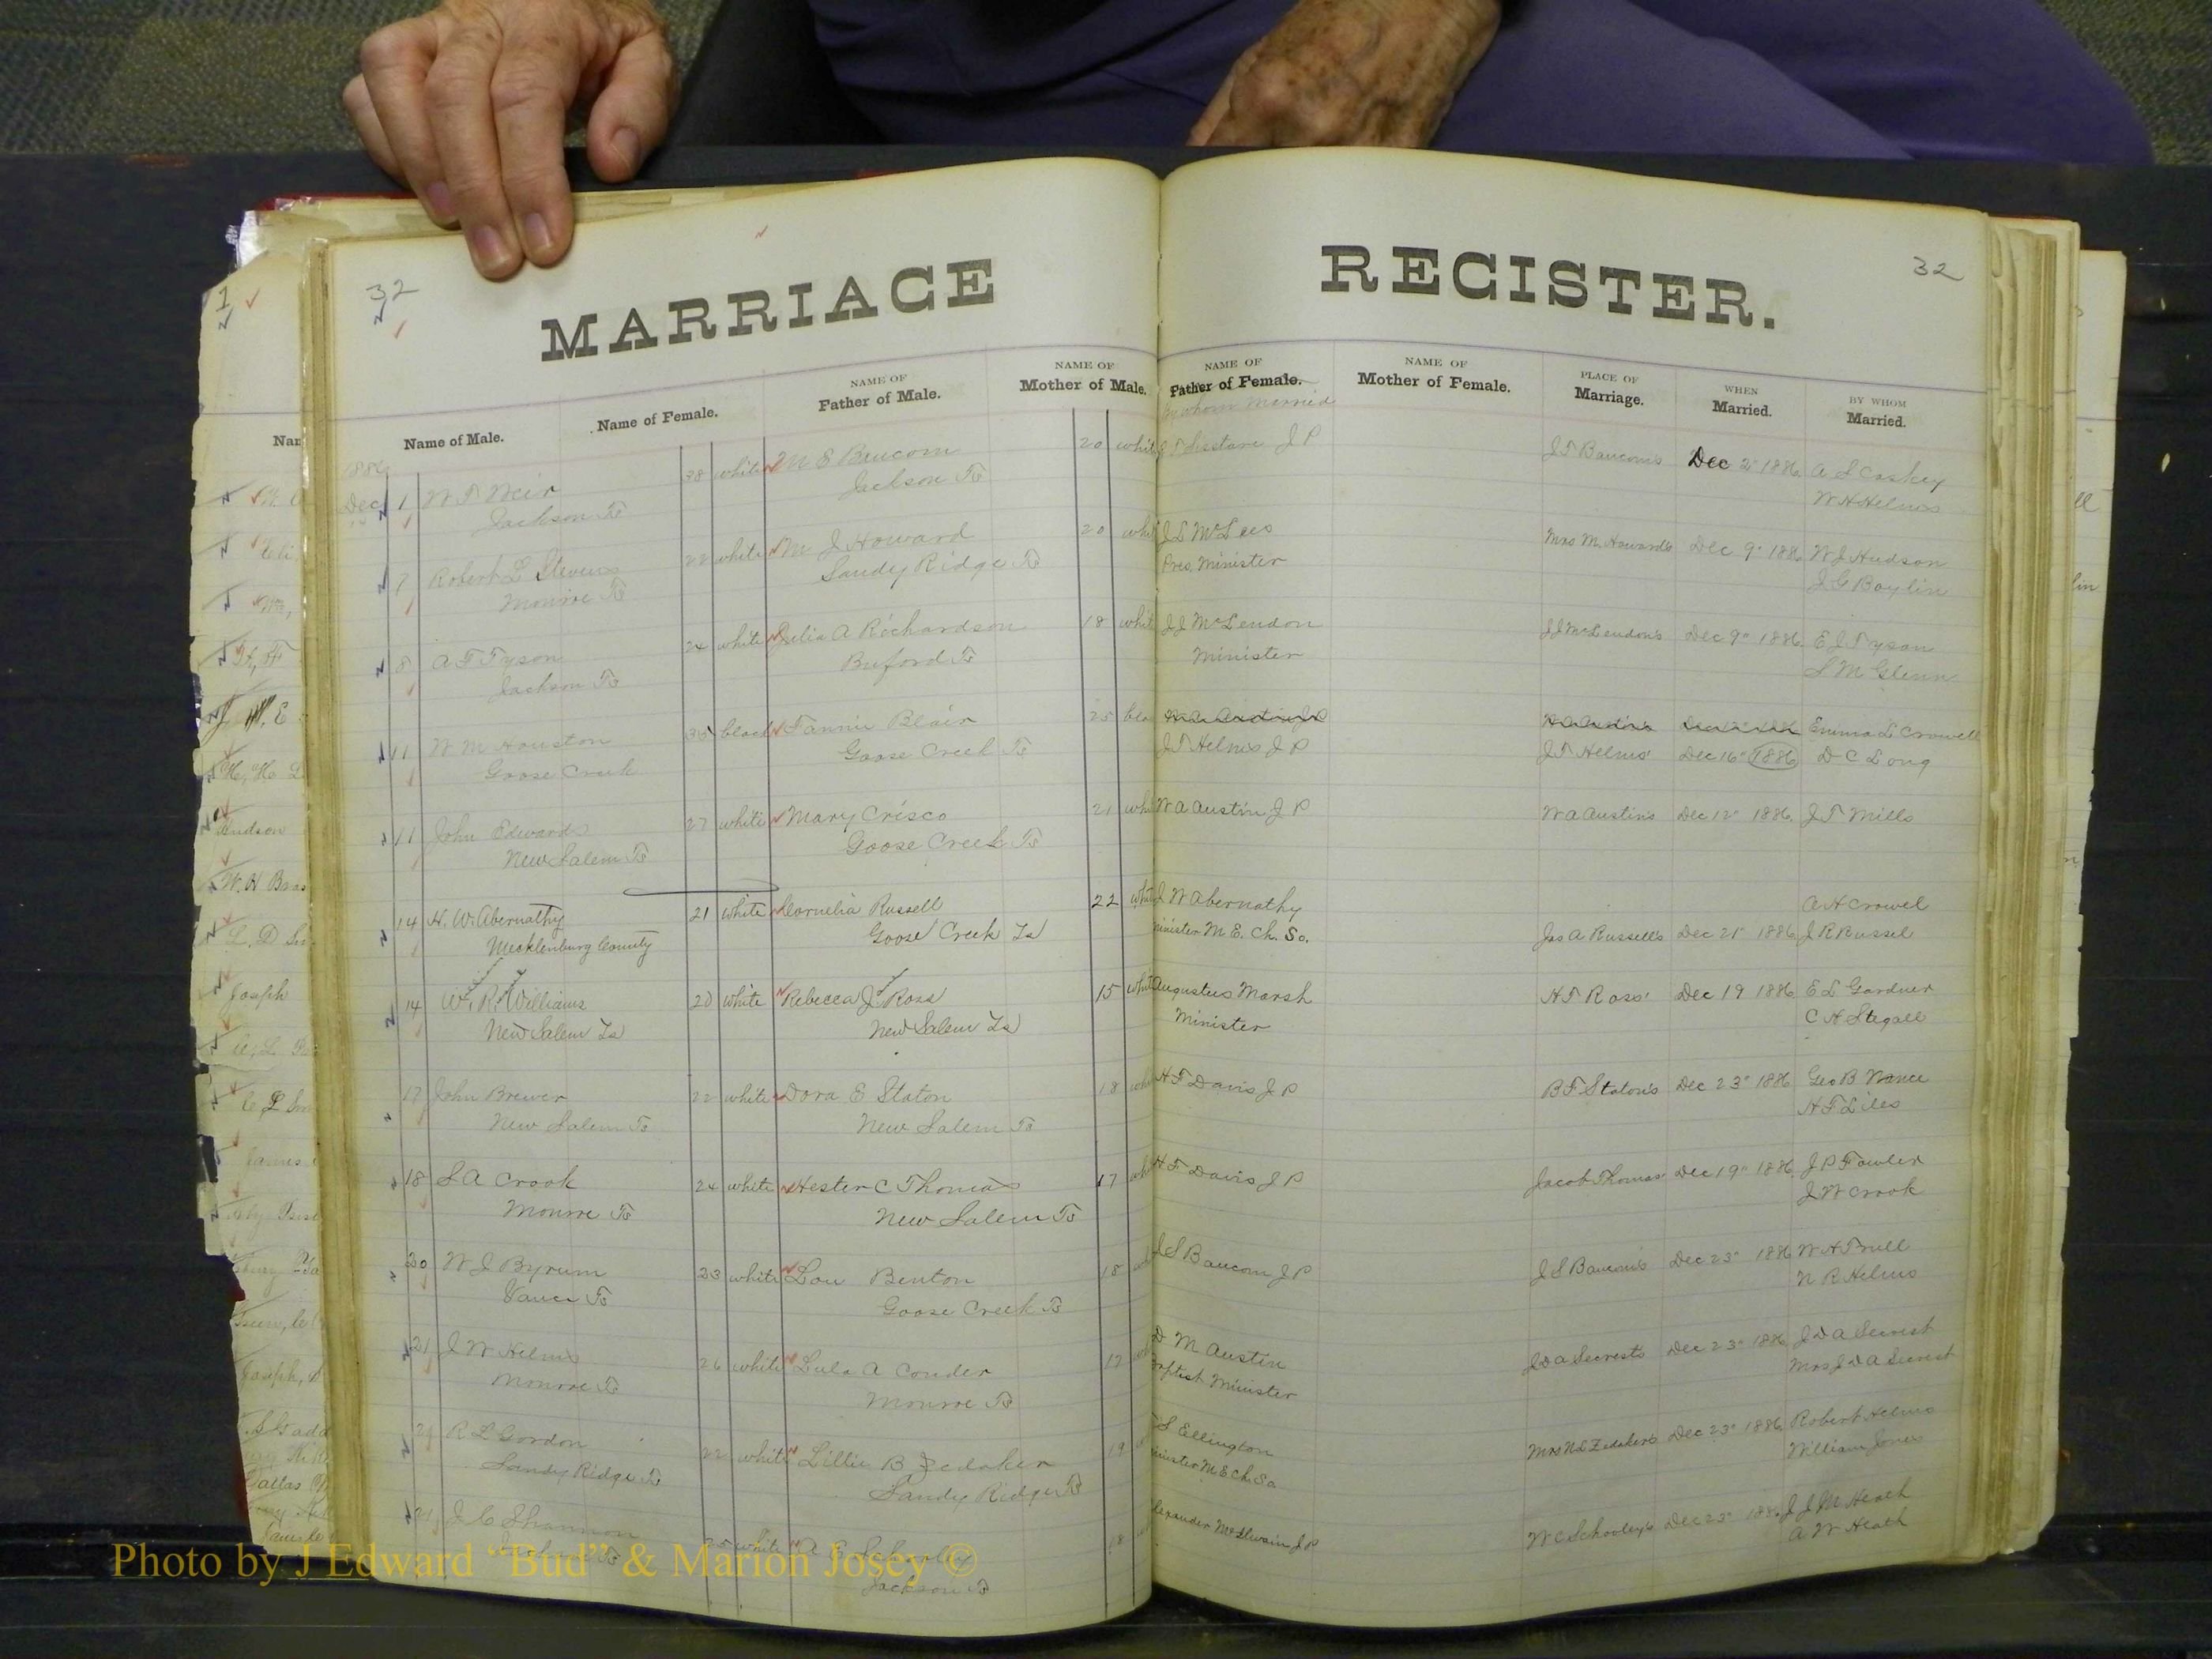 32
MARRIAGE
REGISTER.
32
Name of Male.
Name of Female.
NAME OF
Father of Male.
NAME OF
Mother of Male.
NAME OF
Father of Female.
By whom Married
NAME OF
Mother of Female.
PLACE OF
Marriage.
WHEN
Married.
BY WHOM
Married.
1886
Dec 1 W T Weir 38 white M E Baucom 20 J P J T Baucom's Dec 2" 1886 A S Caskey
Jackson Ts Jackson Ts W H Helms
7 Robert L Stevens 22 white M J Howard 20 J L McLees Mrs M Howard's Dec 9" 1886 W J Hudson
Monroe Ts Sandy Ridge Ts Pres. Minister J G Boylin
8 A F Tyson 24 white Julia A Richardson 18 J J McLendon J J McLendon's Dec 9" 1886 E J Tyson
Jackson Ts Buford Ts Minister S M Glenn
11 W M Houston 35 black Fannie Blair 25 W A Austin J P W A Austin's Dec 12" 1886 Emma L Crowell
Goose Creek Goose Creek Ts J T Helms J P J T Helms' Dec 16" 1886 D C Long
11 John Edwards 27 white Mary Crisco 21 W A Austin J P W A Austin's Dec 12" 1886 J T Mills
New Salem Ts Goose Creek Ts
14 H. W. Abernathy 21 white Cornelia Russell 22 J W Abernathy A H Crowel
Mecklenburg County Goose Creek Ts Minister M E. Ch. So. Jas A Russell's Dec 21" 1886 J R Russel
14 W. R. Williams 20 white Rebecca J. Ross 15 Augustus Marsh H T Ross' Dec 19 1886 E L Gardner
New Salem Ts New Salem Ts Minister C H Stegall
17 John Brewer 22 white Dora E Staton 18 H F Davis J P B F Staton's Dec 23" 1886 Geo B Nance
New Salem Ts New Salem Ts H F Liles
18 S A Crook 24 white Hester C Thomas 17 H F Davis J P Jacob Thomas' Dec 19" 1886 J P Fowler
Monroe Ts New Salem Ts J W Crook
20 W J Byrum 23 white Lou Benton 18 J S Baucom J P J S Baucom's Dec 23" 1886 W H Trull
Vance Ts Goose Creek Ts N R Helms
21 J W Helms 26 white Lula A Conder D M Austin J D A Secrest's Dec 23" 1886 J D A Secrest
Monroe Ts Monroe Ts Baptist Minister Mrs J D A Secrest
21 R L Gordon 22 white Lillie B Zedaker 19 S Ellington Mrs N L Zedaker's Dec 23" 1886 Robert Helms
Sandy Ridge Ts Sandy Ridge Ts Minister M E Ch. So William Jones
21 J C Shannon 25 white A E 18 Alexander McIlwain J P W C Schooley's Dec 23" 1886 J J M Heath
Jackson Ts A W Heath
Photo by J Edward "Bud" & Marion Josey ©